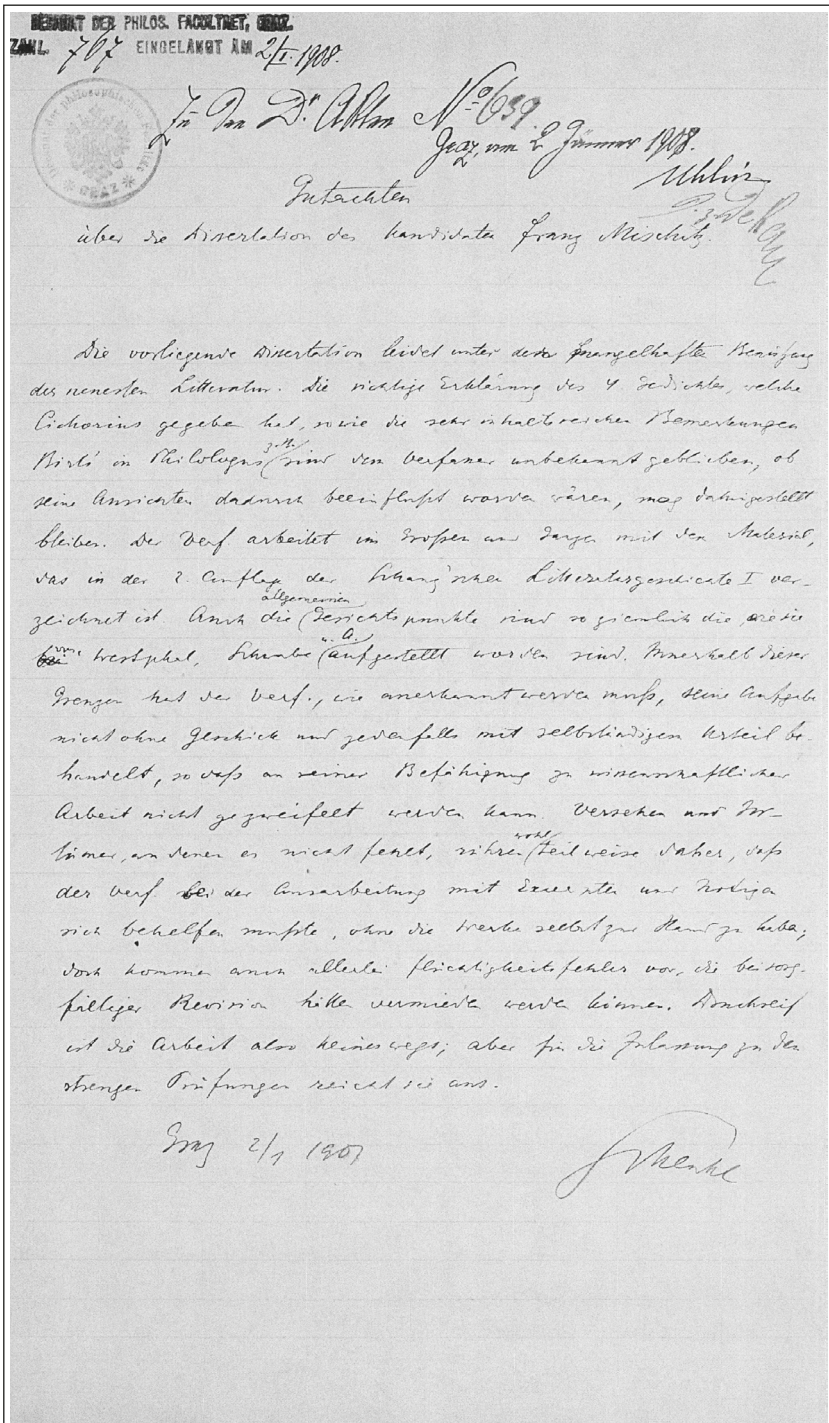 DEKANAT DER PHILOS. FACULTAET, GRAZ.
ZAHL 767 EINGELANGT AM 2/I. 1908.
Dekanat der philosophischen Facultät
* GRAZ *
Zu den Dr. Akten No 639.
Graz, am 2. Jänner 1908.
Uhlirz
Gutachten
über die Dissertation des Kandidaten Franz Mischitz.
Die vorliegende Dissertation leidet unter der mangelhaften Benützung
der neuesten Litteratur. Die richtige Erklärung des 4. Gedichtes, welche
Cichorius gegeben hat, sowie die sehr inhaltsreichen Bemerkungen
Birts in Philologus sind dem Verfasser unbekannt geblieben, ob
seine Ansichten dadurch beeinflußt worden wären, mag dahingestellt
bleiben. Der Verf. arbeitet im Großen und Ganzen mit dem Material,
das in der 2. Auflage der Schanz'schen Litteraturgeschichte I ver-
zeichnet ist. Auch die allgemeinen Gesichtspunkte sind so ziemlich die, wie sie
von Westphal, Schwabe u. A. aufgestellt worden sind. Innerhalb dieser
Grenzen hat der Verf., wie anerkannt werden muß, seine Aufgabe
nicht ohne Geschick und jedenfalls mit selbständigem Urteil be-
handelt, so daß an seiner Befähigung zu wissenschaftlicher
Arbeit nicht gezweifelt werden kann. Versehen und Irr-
tümer, an denen es nicht fehlt, rühren wohl teilweise daher, daß
der Verf. bei der Ausarbeitung mit Excerpten und Notizen
sich behelfen mußte, ohne die Werke selbst zur Hand zu haben;
doch kommen auch allerlei Flüchtigkeitsfehler vor, die bei sorg-
fältiger Revision hätten vermieden werden können. Druckreif
ist die Arbeit also keineswegs; aber für die Zulassung zu den
strengen Prüfungen reicht sie aus.
Graz 2/1 1908
Schenkl